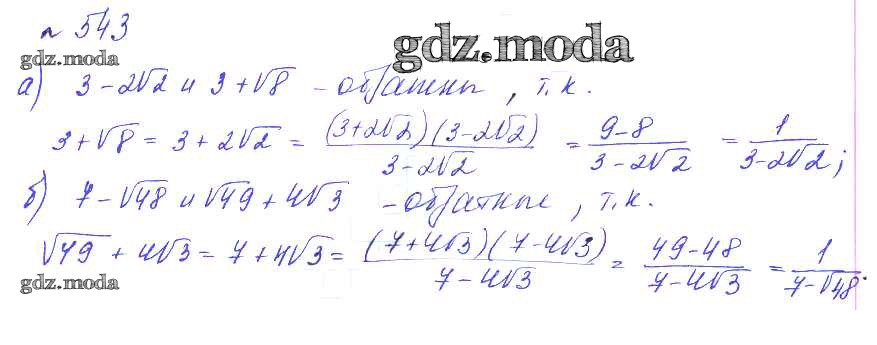 № 543
gdz.moda
gdz.moda
а) 3 - 2√2 и 3 + √8 - обратны, т.к.
3 + √8 = 3 + 2√2 = (3+2√2)(3-2√2) / 3-2√2 = 9-8 / 3-2√2 = 1 / 3-2√2;
б) 7 - √48 и √49 + 4√3 - обратные, т.к.
√49 + 4√3 = 7 + 4√3 = (7+4√3)(7-4√3) / 7-4√3 = 49-48 / 7-4√3 = 1 / 7-√48.
gdz.moda